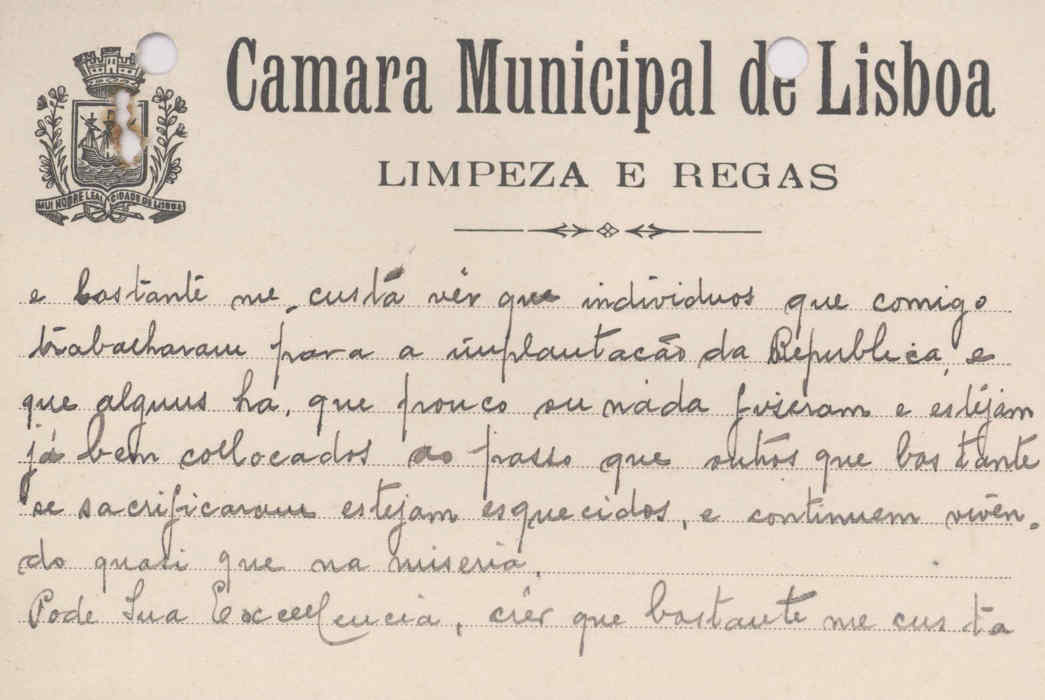 Camara Municipal de Lisboa
MUI NOBRE LEAL CIDADE DE LISBOA
LIMPEZA E REGAS
e bastante me custa vêr que individuos que comigo
trabacharam para a implantacão da Republica, e
que alguns ha, que pouco ou nada fiseram e estéjam
já bem collocados ao passo que outros que bastante
se sacrificaram estejam esquecidos, e continuem vivên-
do quasi que na miseria.
Pode Sua Excellencia, crêr que bastante me custa